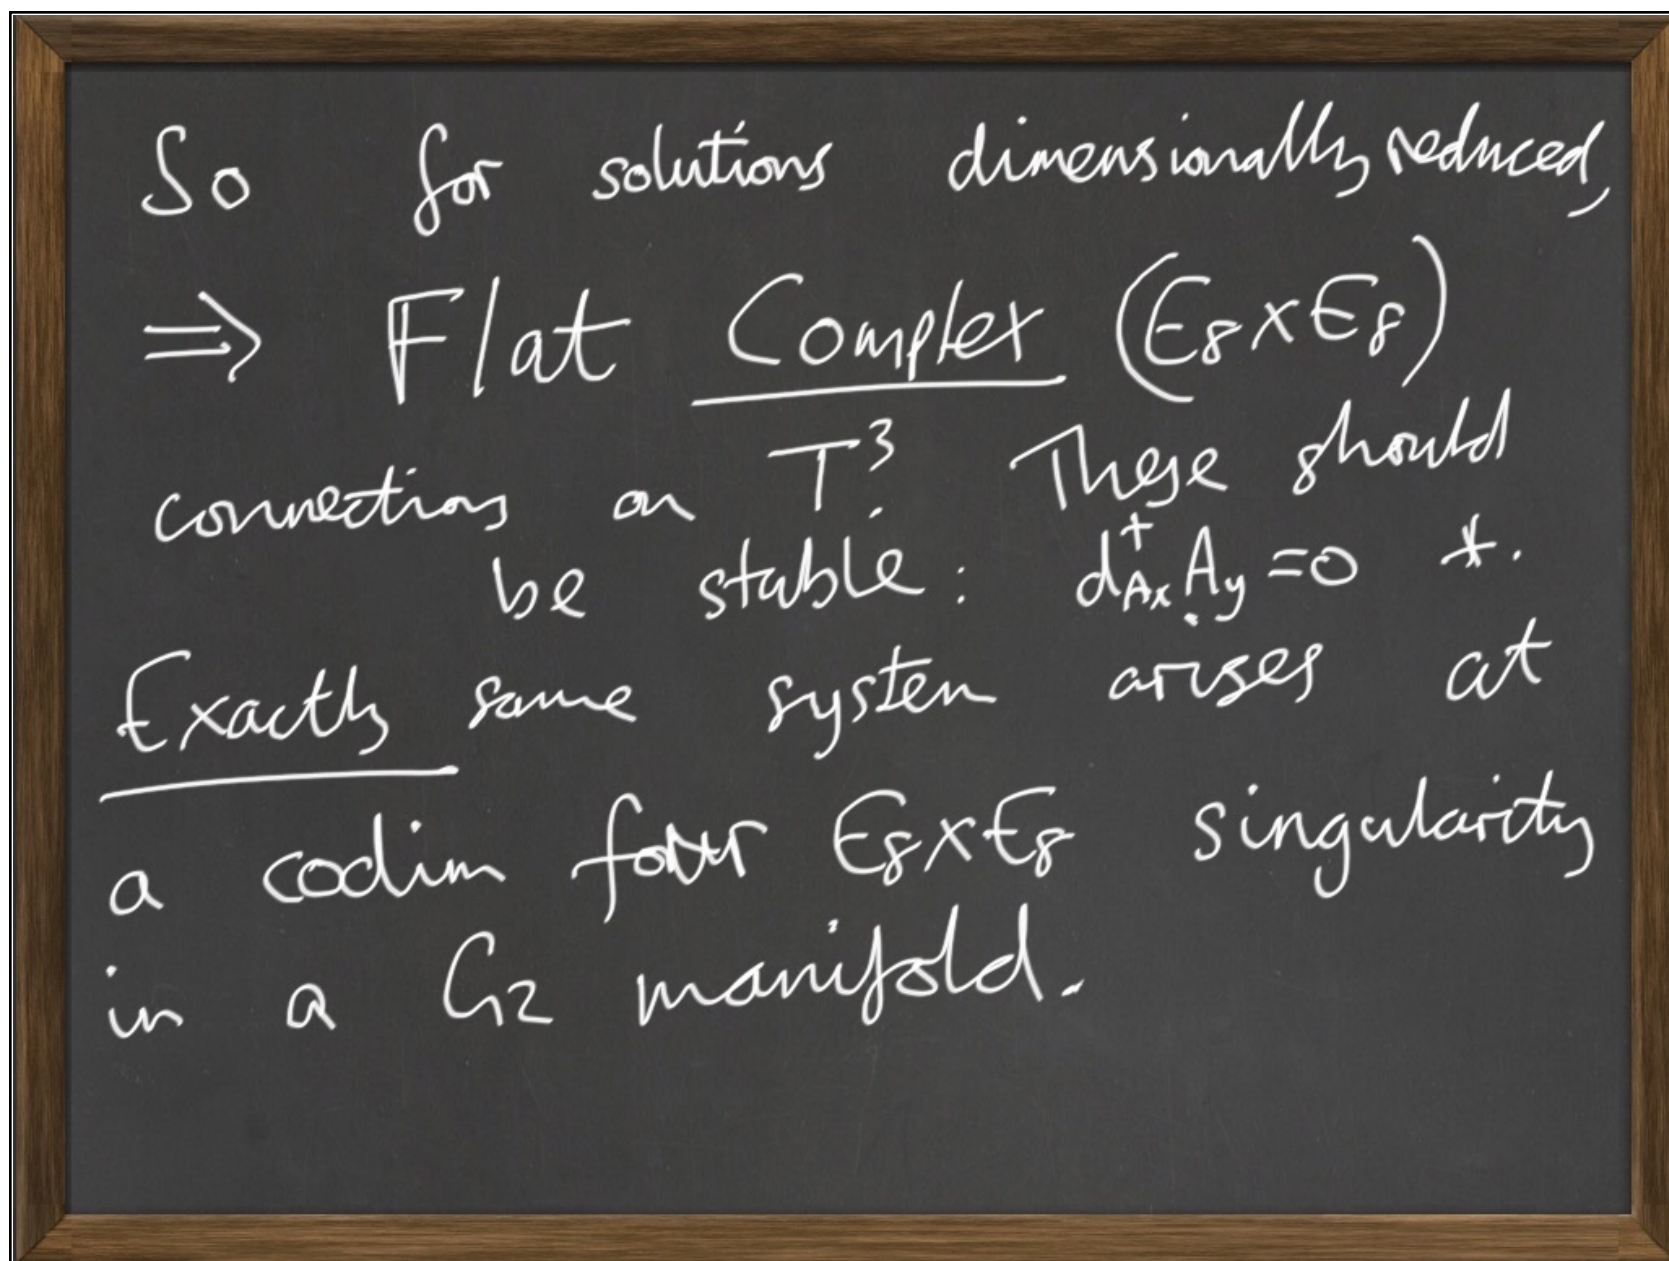 So for solutions dimensionally reduced,
⇒ Flat Complex (E₈×E₈)
connections on T³. These should
be stable: d†_{A_x} A_y = 0 *.
Exactly same system arises at
a codim four E₈×E₈ singularity
in a G₂ manifold.